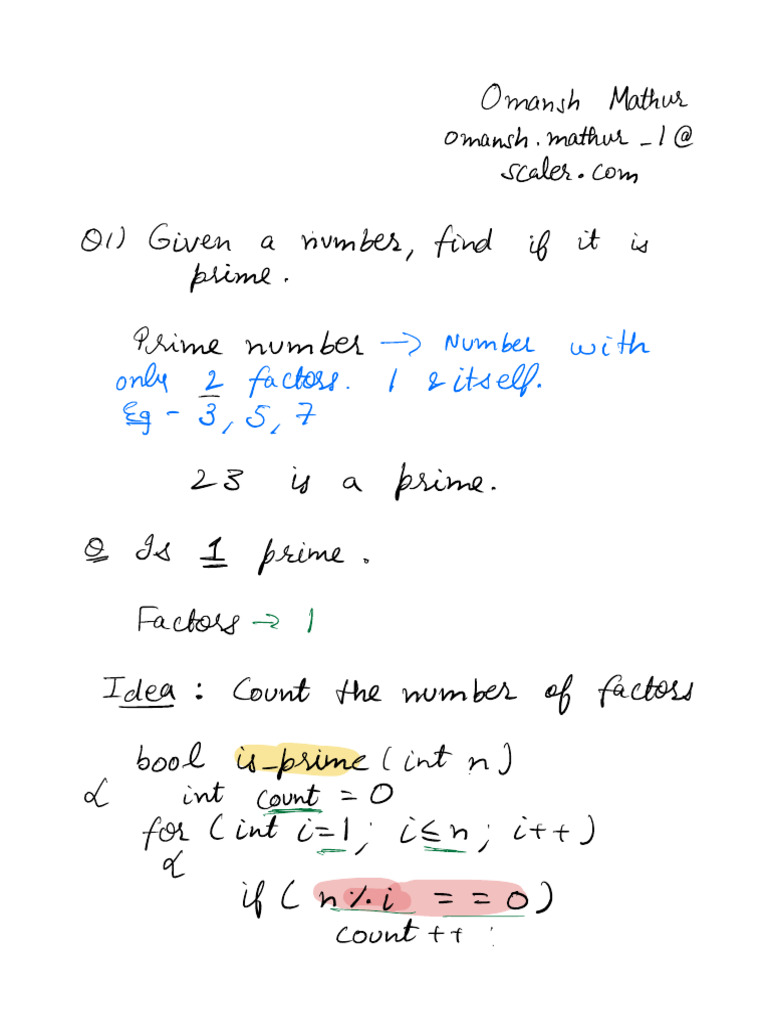 Omansh Mathur
omansh.mathur_1@
scaler.com
Q1) Given a number, find if it is
prime.
Prime number → Number with
only 2 factors. 1 & itself.
Eg - 3, 5, 7
23 is a prime.
Q Is 1 prime.
Factors → 1
Idea : Count the number of factors
bool is_prime (int n)
{ int count = 0
for (int i=1; i≤n; i++)
{
if ( n % i == 0)
count++ ;